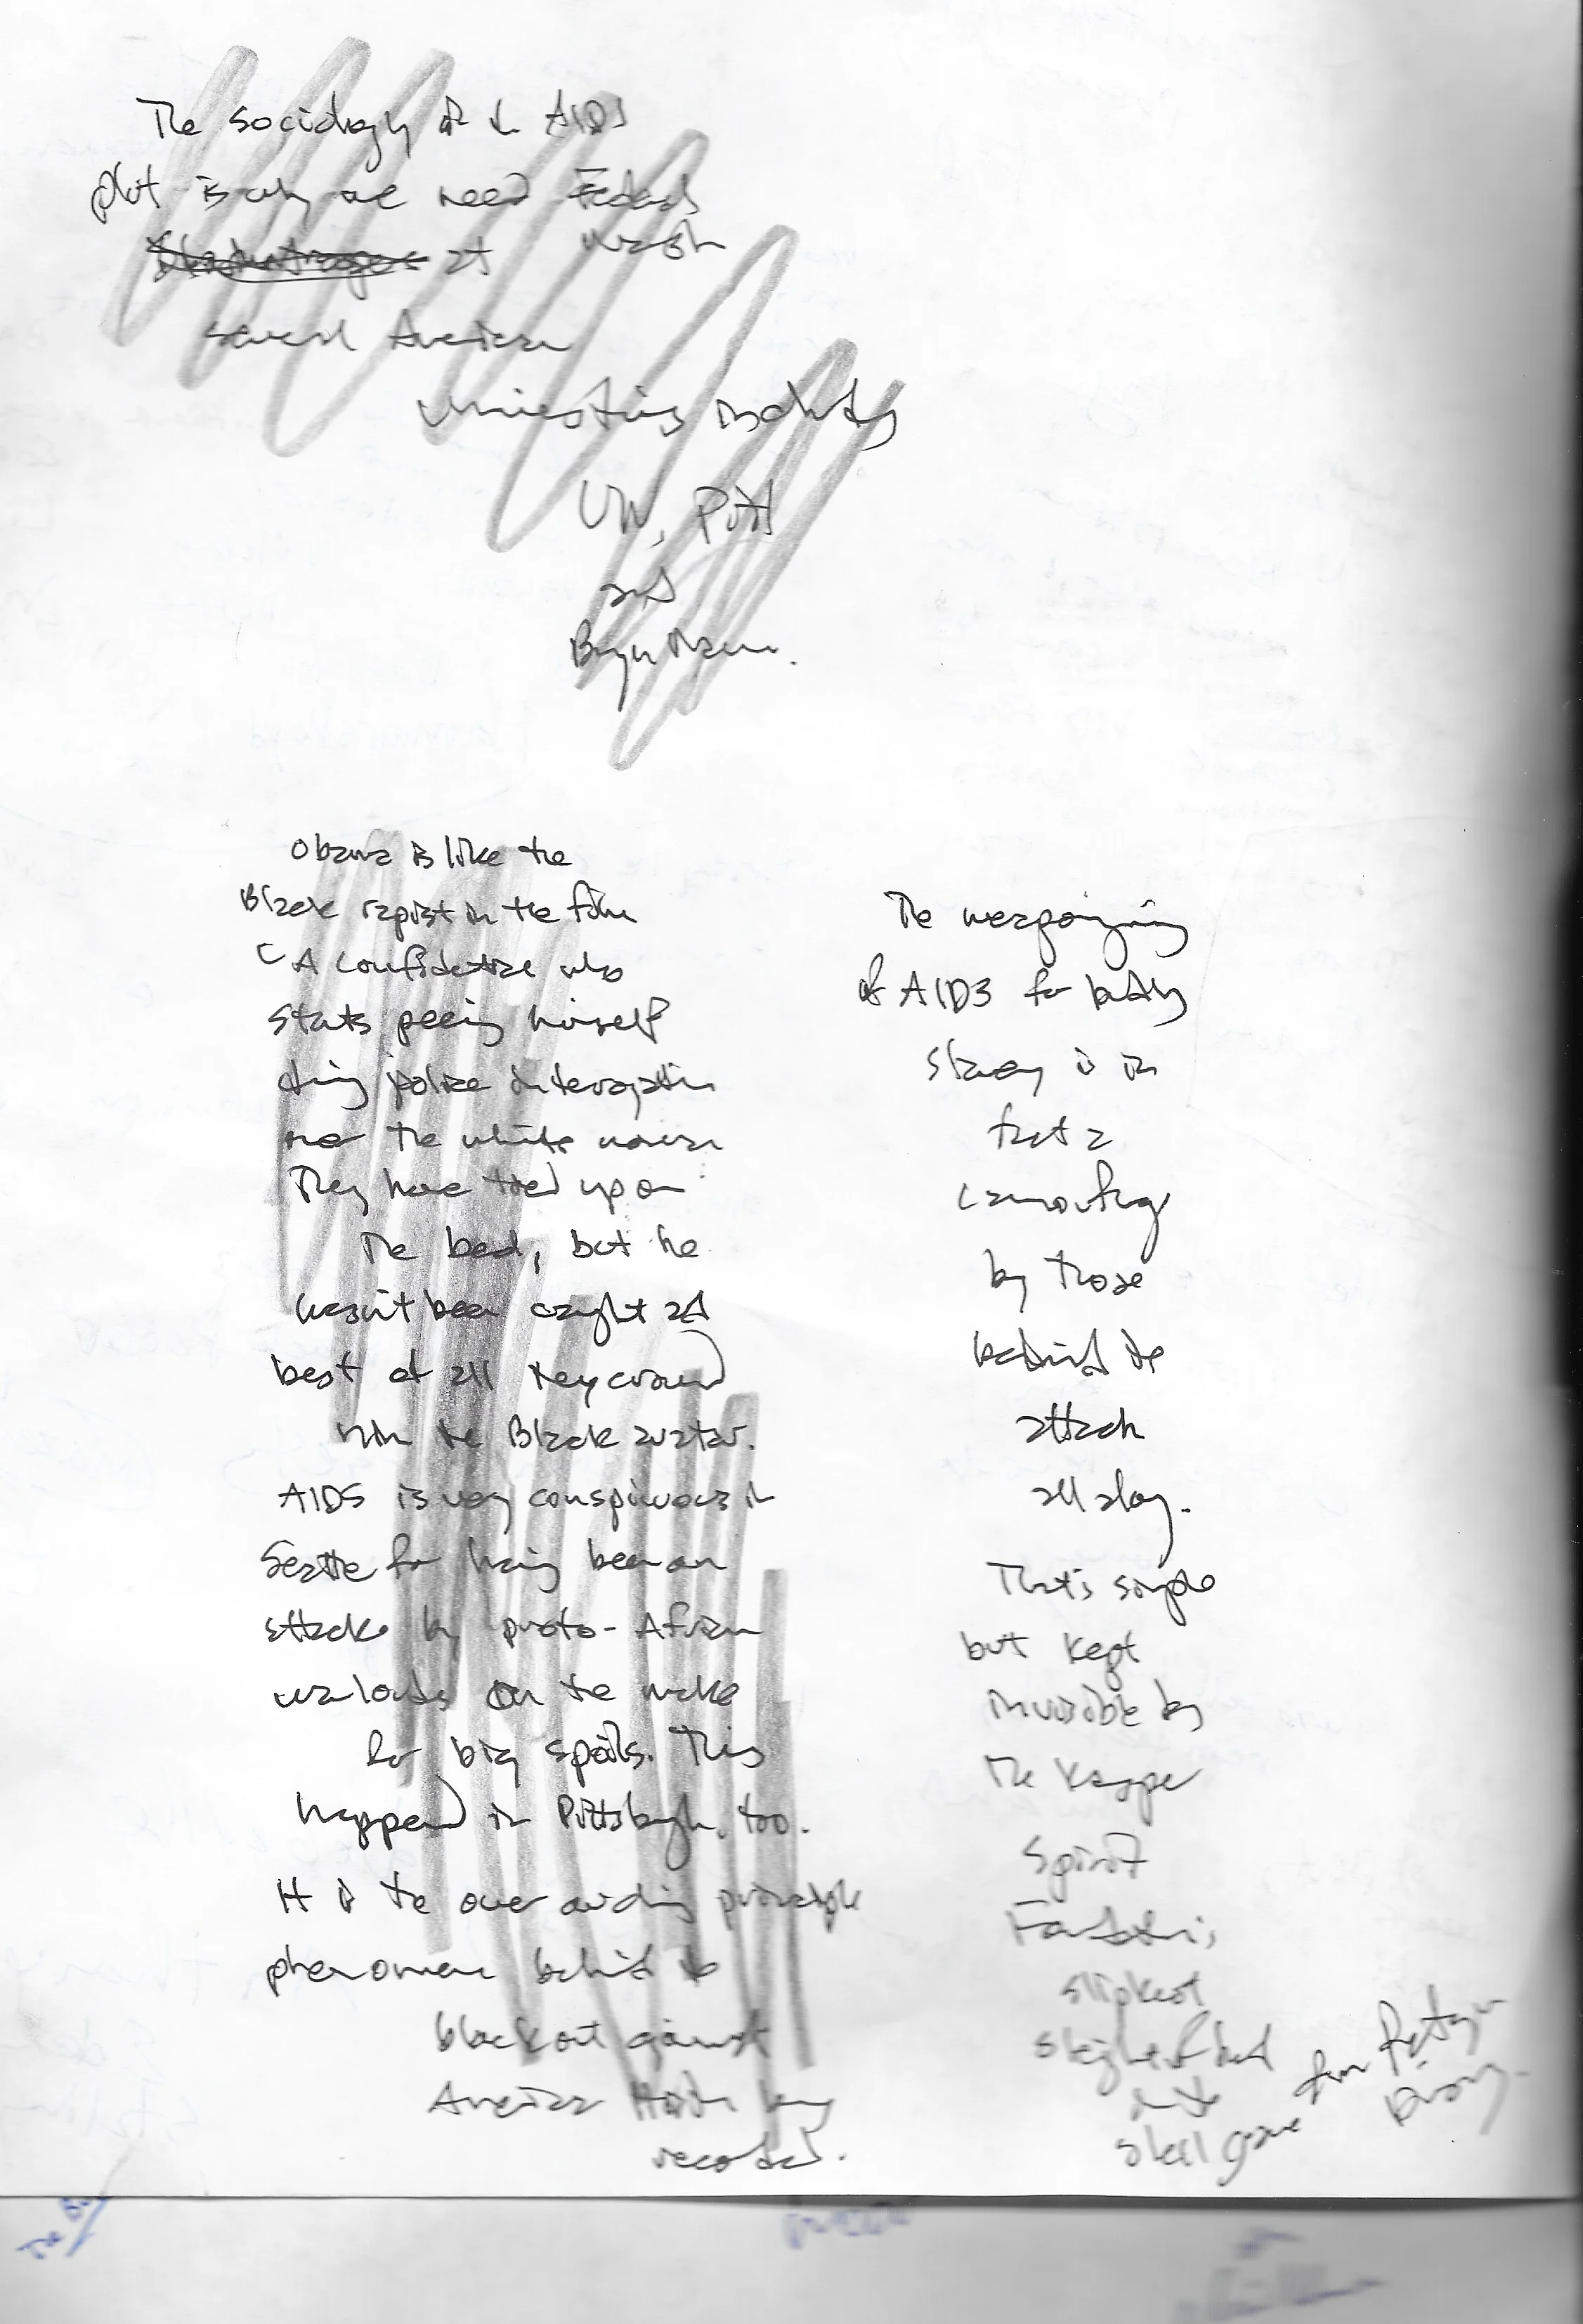 The sociology of the AIDS
plot is why we need Federal
at wash
several American
universities including
UW, Pitt
and
Bryn Mawr.
Obama is like the
Black rapist in the film
LA Confidential who
starts peeing himself
during police interrogation
over the white woman
They have tied up on
the bed, but he
hasn't been caught and
best of all they crowned
him the Black avatar.
AIDS is very conspicuous in
Seattle for having been an
attack by proto-African
warlords on the make
for big spoils. This
happened in Pittsburgh, too.
It is the over arching principle
phenomena behind the
blackout against
America being
recorded.
The weaponizing
of AIDS for
slavery is in
fact a
camouflage
by those
behind the
attack
all along.
That's simple
but kept
invisible by
the
Spirit
slickest
sleight of hand
shell game from